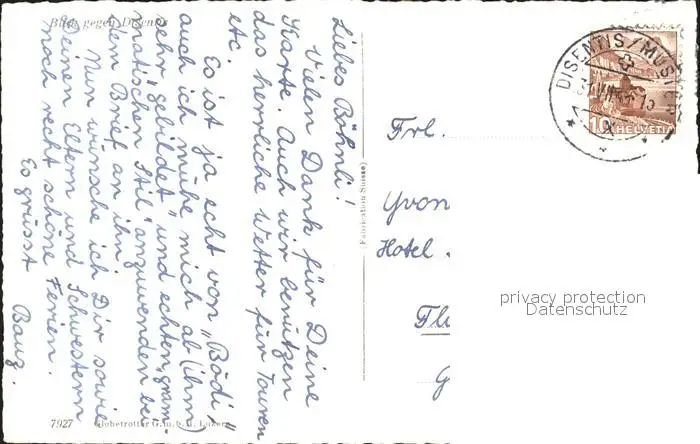 Blick gegen Disentis
Liebes Böhnli!
Vielen Dank für Deine
Karte. Auch wir benützen
das herrliche Wetter für Touren
etc.
Es ist ja echt von „Bödi",
auch ich mühe mich ab (ihm)
sehr „gebildet" und echten, gram-
matischen Stil anzuwenden bei
dem Brief an ihn.
Nun wünsche ich Dir sowie
Deinen Eltern und Schwestern
noch recht schöne Ferien.
Es grüsst
Bauz.
7927 Globetrotter G.m.b.H. Luzern
(Fabrication Suisse)
DISENTIS/MUSTER
HELVETIA
Frl.
Yvon
Hotel
Fli
G
privacy protection
Datenschutz